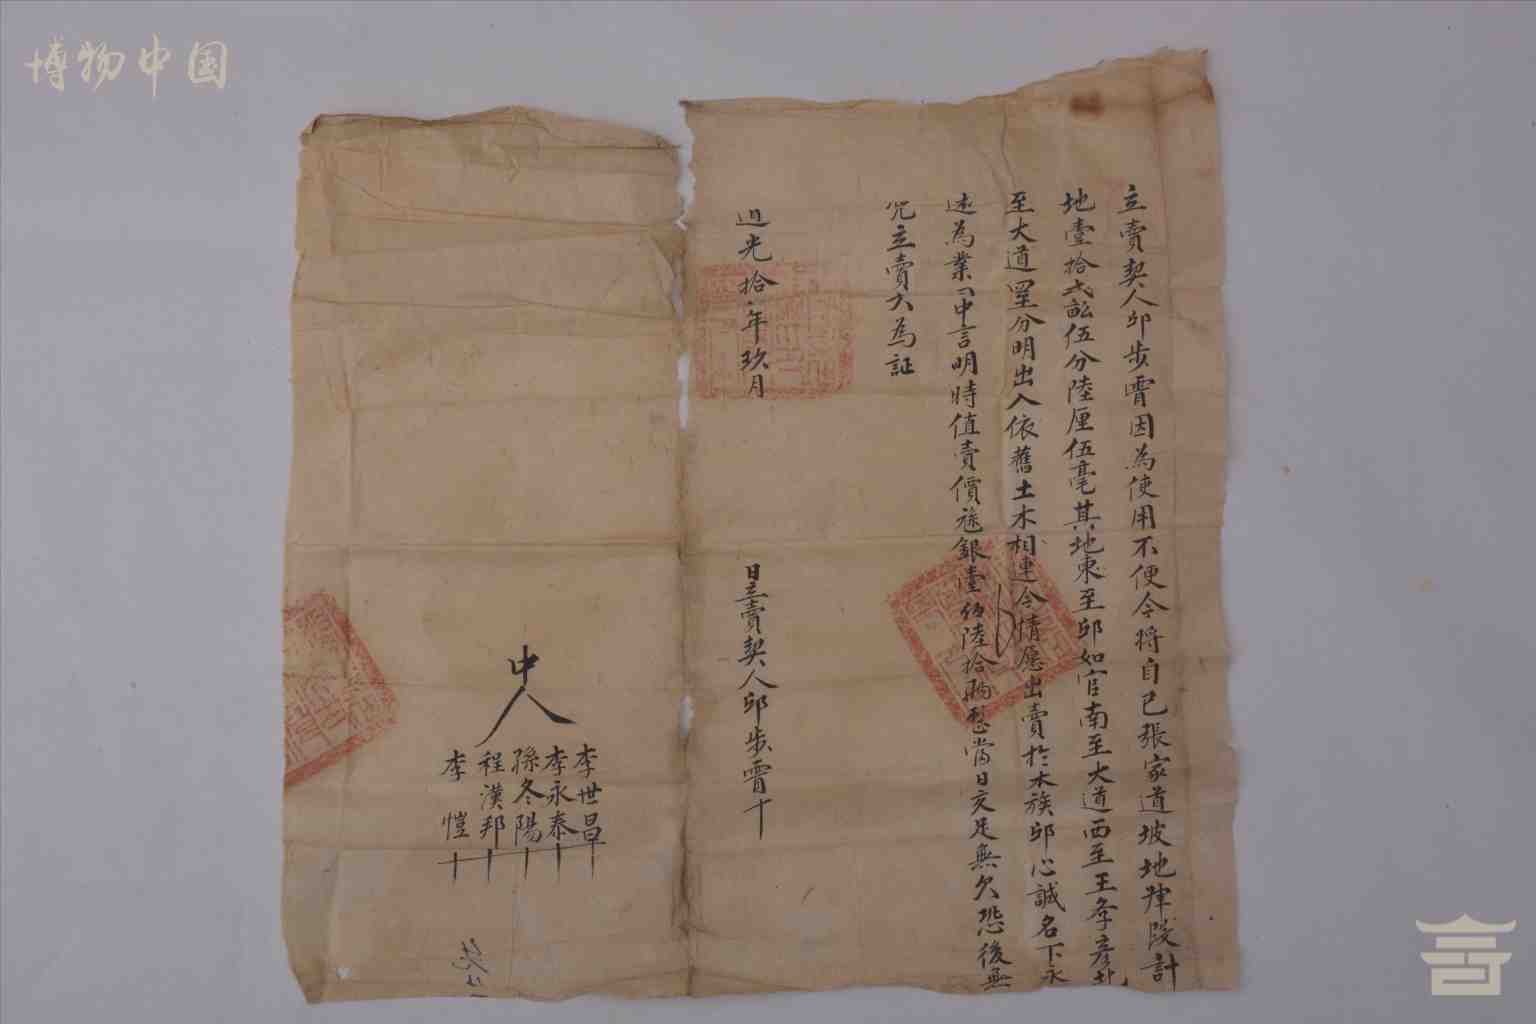 博物中国
立賣契人邱步霄因為使用不便今将自己張家道坡地肆段計
地壹拾弍畝伍分陸厘伍毫其地東至邱如官南至大道西至王孝彦北
至大道四至分明出入依舊土木相連今情愿出賣於本族邱心誠名下永
遠為業同中言明時值賣價銀壹伯陸拾兩整當日交足無欠恐後無
凭立賣文為証
道光拾年玖月
日立賣契人邱步霄十
中人
李世昌十
李永泰十
孫冬陽十
程漢邦十
李愷十